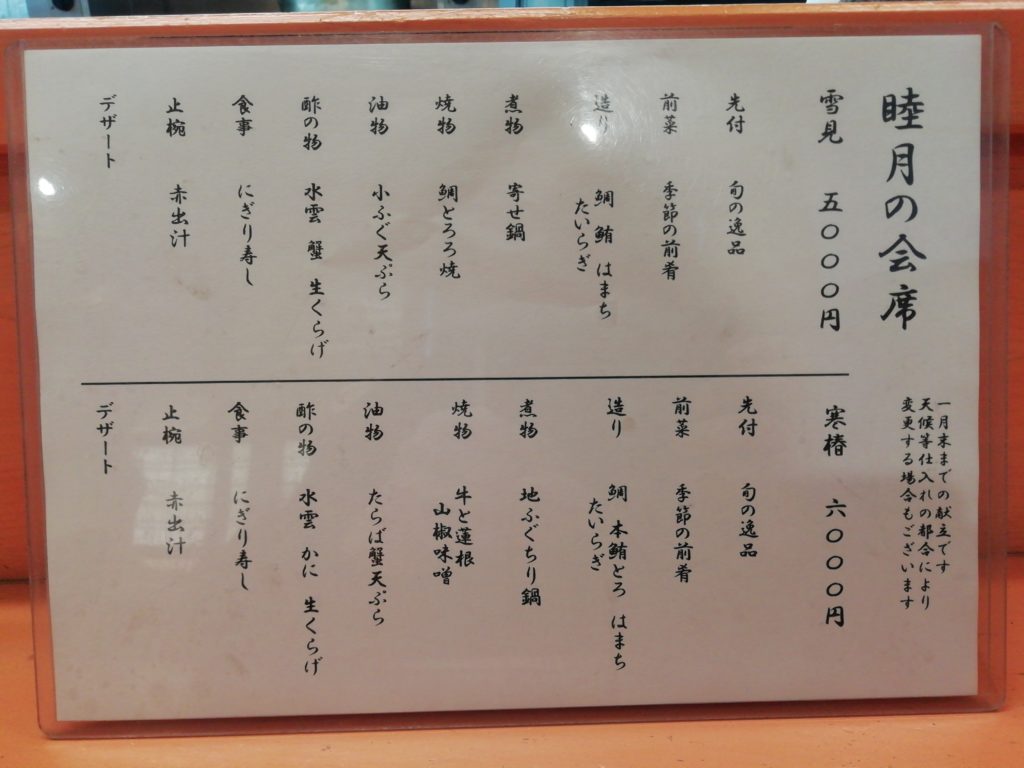 睦月の会席
一月末までの献立です
天候等仕入れの都合により
変更する場合もございます
雪見 五〇〇〇円
先付 旬の逸品
前菜 季節の前肴
造り 鯛 鮪 はまち
たいらぎ
煮物 寄せ鍋
焼物 鯛とろろ焼
油物 小ふぐ天ぷら
酢の物 水雲 蟹 生くらげ
食事 にぎり寿し
止椀 赤出汁
デザート
寒椿 六〇〇〇円
先付 旬の逸品
前菜 季節の前肴
造り 鯛 本鮪とろ はまち
たいらぎ
煮物 地ふぐちり鍋
焼物 牛と蓮根
山椒味噌
油物 たらば蟹天ぷら
酢の物 水雲 かに 生くらげ
食事 にぎり寿し
止椀 赤出汁
デザート